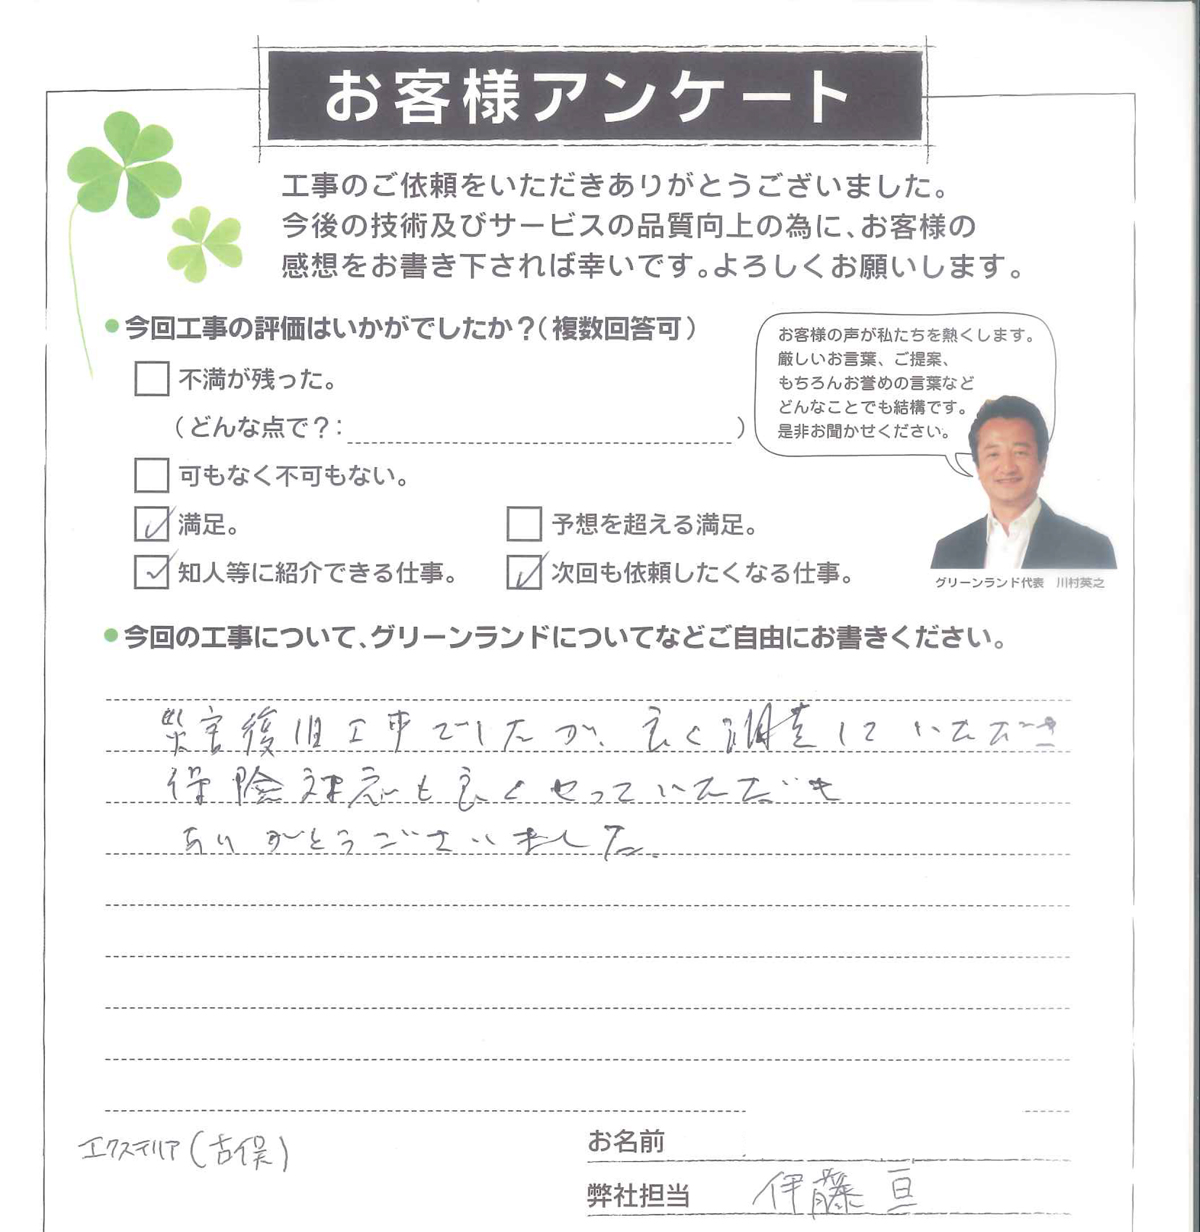 お客様アンケート
工事のご依頼をいただきありがとうございました。
今後の技術及びサービスの品質向上の為に、お客様の
感想をお書き下されば幸いです。よろしくお願いします。
今回工事の評価はいかがでしたか？（複数回答可）
不満が残った。
（どんな点で？：　）
可もなく不可もない。
満足。
予想を超える満足。
知人等に紹介できる仕事。
次回も依頼したくなる仕事。
お客様の声が私たちを熱くします。
厳しいお言葉、ご提案、
もちろんお誉めの言葉など
どんなことでも結構です。
是非お聞かせください。
グリーンランド代表　川村英之
今回の工事について、グリーンランドについてなどご自由にお書きください。
災害復旧工事でしたが、良く調査していただき
保険対応も良くやっていただき
ありがとうございました。
エクステリア（吉俣）
お名前
弊社担当　伊藤 亘